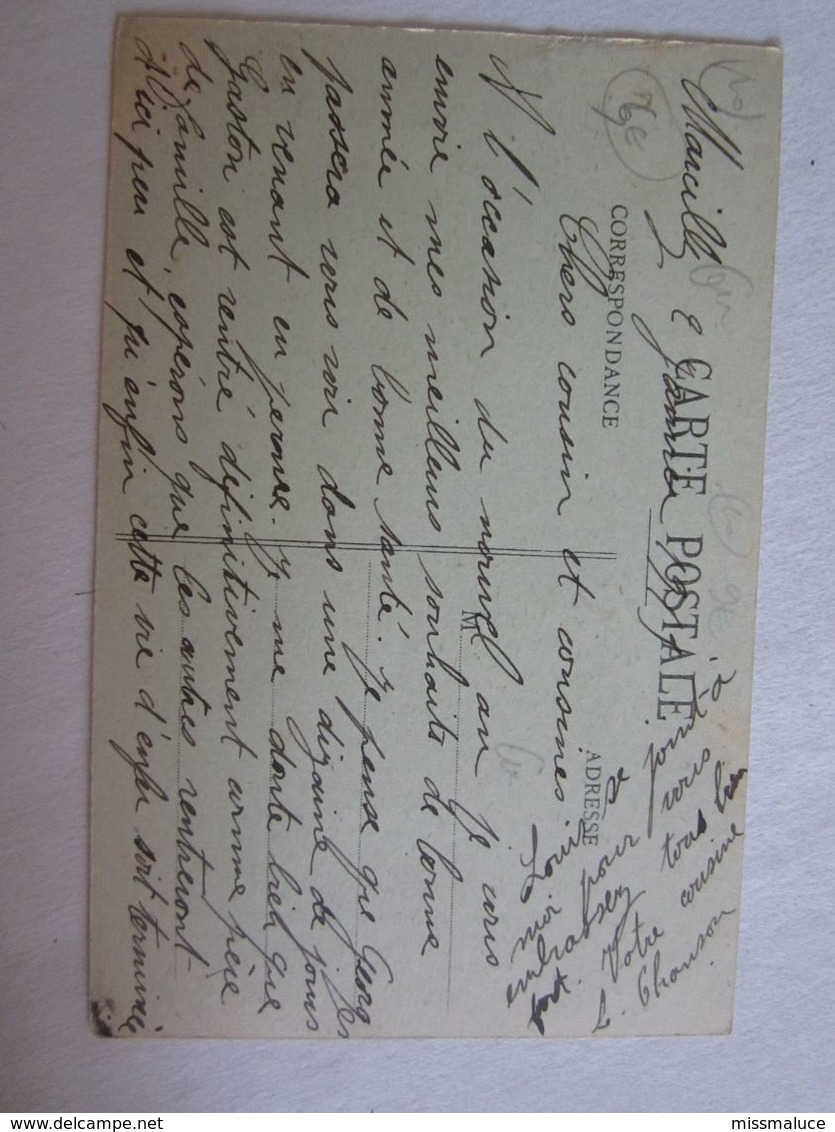 CARTE POSTALE
CORRESPONDANCE
ADRESSE
M
Marseille 2 Janvier
Chers cousin et cousines.
A l'occasion du nouvel an je vous
envoie mes meilleurs souhaits de bonne
année et de bonne santé. Je pense que Georges
passera vous voir dans une dizaine de jours
en venant en perme. Je me doute bien que
Gaston est rentré définitivement comme père
de famille, espérons que les autres rentreront
d'ici peu et qu'enfin cette vie d'enfer soit terminée
Louis se joint à
moi pour vous
embrasser tous bien
fort. Votre cousine
L. Chanson
6e
www.delcampe.net
missmaluce